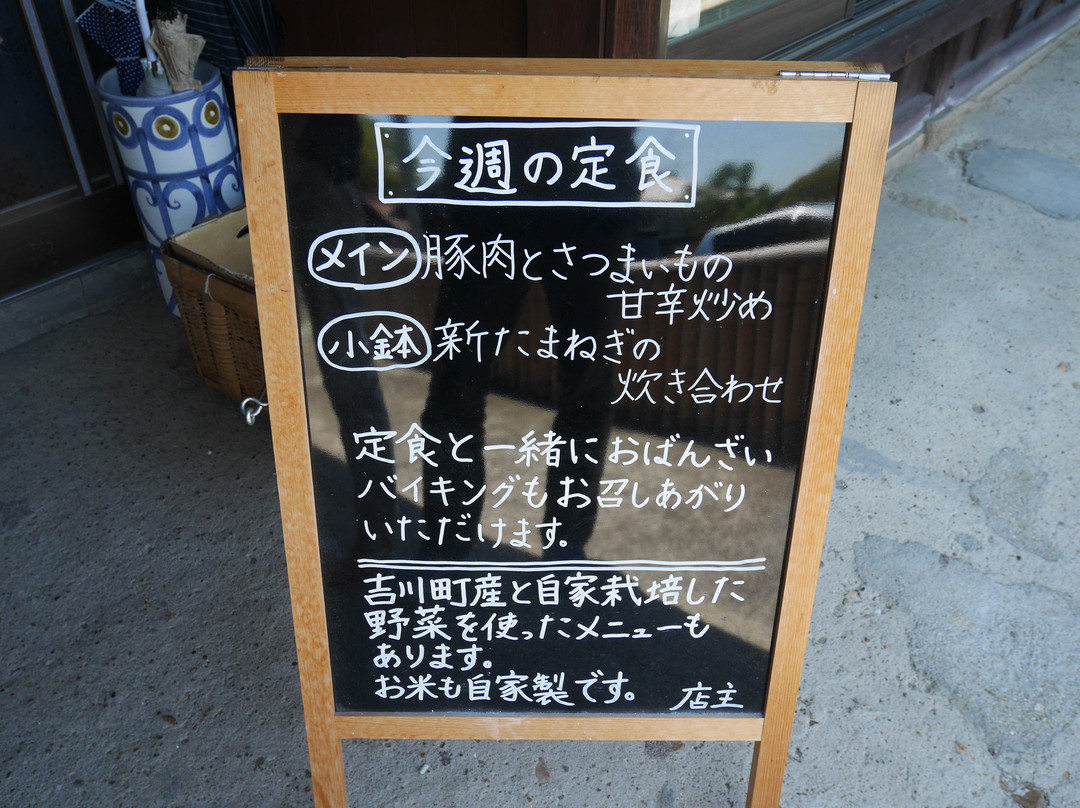 今週の定食
メイン 豚肉とさつまいもの
甘辛炒め
小鉢 新たまねぎの
炊き合わせ
定食と一緒におばんざい
バイキングもお召しあがり
いただけます。
吉川町産と自家栽培した
野菜を使ったメニューも
あります。
お米も自家製です。 店主